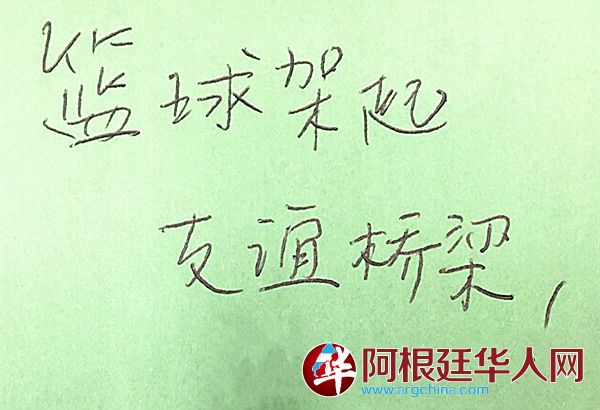 篮球架起
友谊桥梁，
华 阿根廷华人网
www.argchina.com